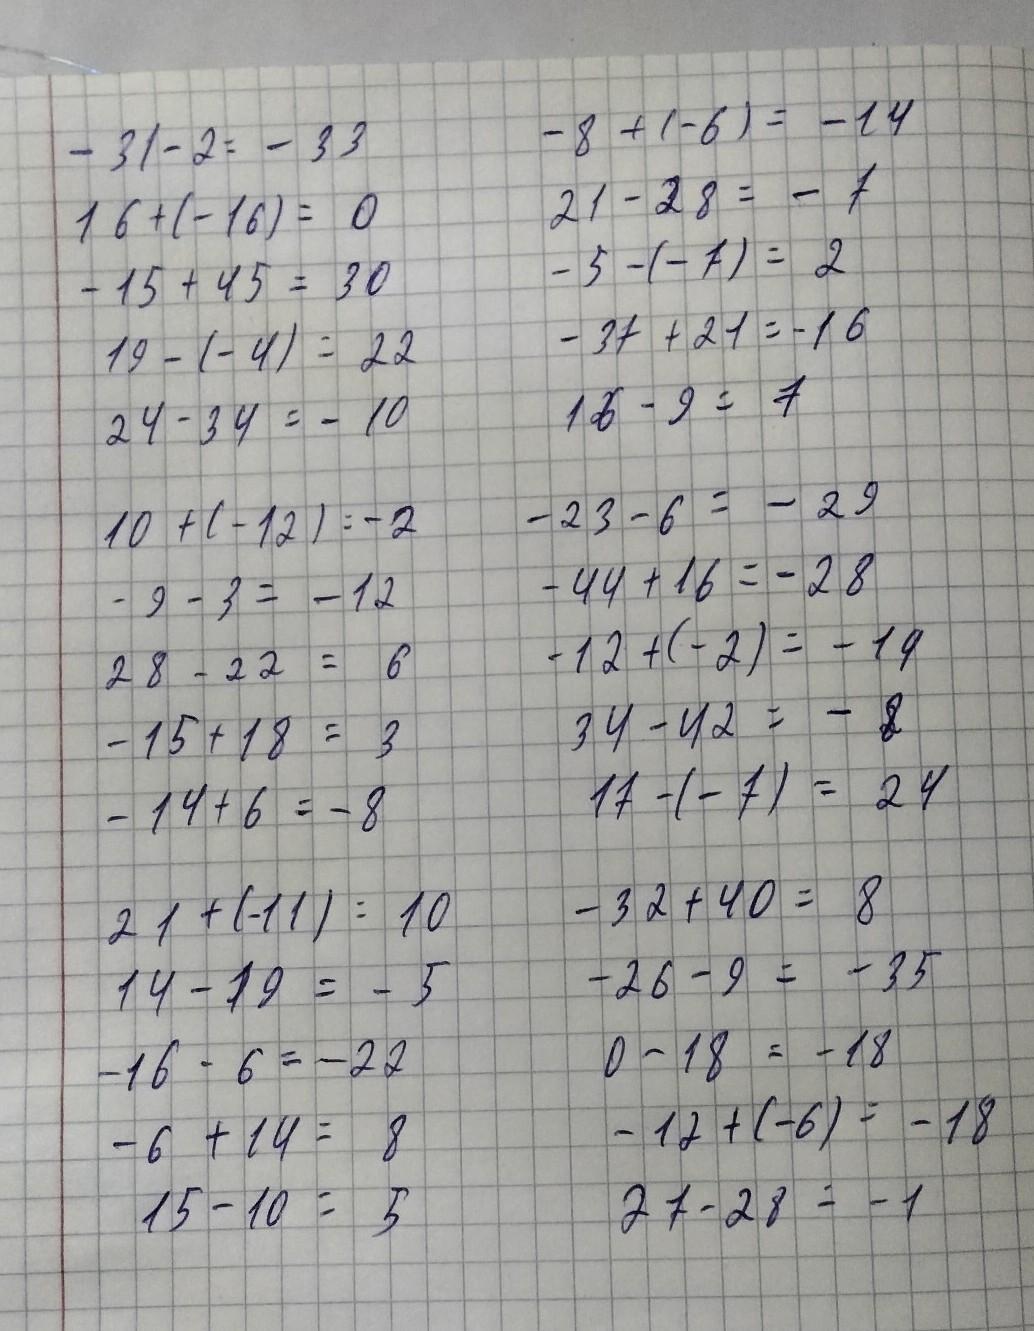 -31-2= -33
16+(-16)= 0
-15+45 = 30
19-(-4) = 22
24-34 = -10
-8 +(-6)= -14
21-28 = -7
-5-(-7) = 2
-37 +21=-16
16-9 = 7
10 +(-12)=-2
-9-3= -12
28-22 = 6
-15+18 = 3
-14+6 =-8
-23-6 = -29
-44+16 =-28
-12+(-2) = -14
34-42 = -8
17-(-7) = 24
21+(-11) = 10
14-19 = -5
-16-6=-22
-6 +14= 8
15-10= 5
-32+40= 8
-26-9 = -35
0-18 = -18
-12+(-6)= -18
27-28 = -1